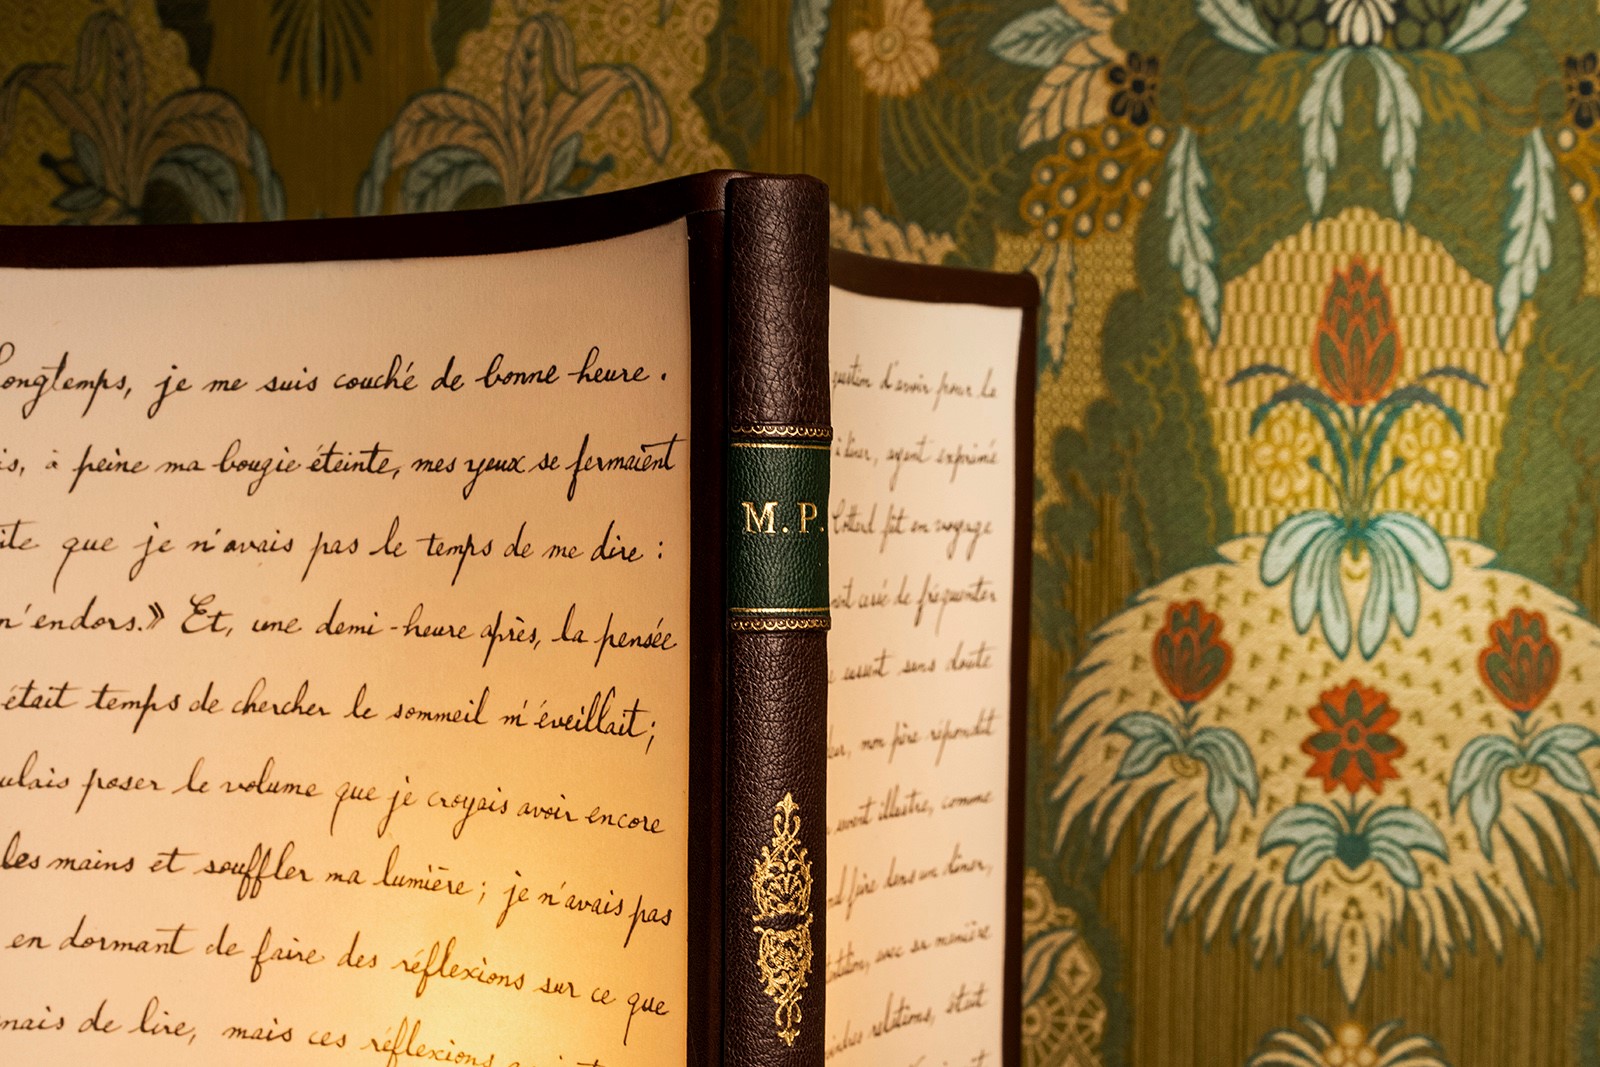 Longtemps, je me suis couché de bonne heure.
is, à peine ma bougie éteinte, mes yeux se fermaient
ite que je n'avais pas le temps de me dire :
m'endors.» Et, une demi-heure après, la pensée
était temps de chercher le sommeil m'éveillait;
ulais poser le volume que je croyais avoir encore
les mains et souffler ma lumière; je n'avais pas
en dormant de faire des réflexions sur ce que
nais de lire, mais ces réflexions
M. P.
question d'avoir pour la
à dîner, ayant exprimé
Cottard fût en voyage
cessé de fréquenter
eussent sans doute
mon père répondit
savant illustre, comme
faire dans un dîner,
avec sa manière
moindres relations, était